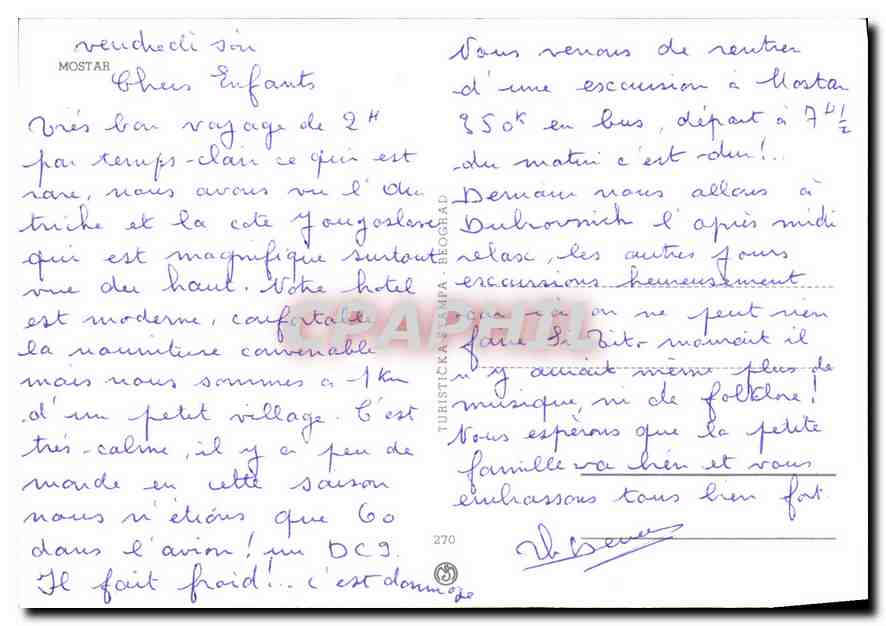 vendredi soir
MOSTAR
Chers Enfants
Très bon voyage de 2H
par temps-clair ce qui est
rare, nous avons vu l'Au
triche et la cote Yougoslave
qui est magnifique surtout
vue du haut. Notre hotel
est moderne, confortable
la nourriture convenable
mais nous sommes à 1km
d'un petit village. C'est
très-calme, il y a peu de
monde en cette saison
nous n'étions que 60
dans l'avion! un DC9.
Il fait froid!... c'est dommage
Nous venons de rentrer
d'une excursion à Mostar
350k en bus, départ à 7H1/2
du matin c'est -dur!..
Demain nous allons à
Dubrovnich l'après midi
relax, les autres jours
excursions heureusement
car ici on ne peut rien
faire Si Tito mourait il
n'y aurait même plus de
musique, ni de folklore!
Nous espérons que la petite
famille va bien et vous
embrassons tous bien fort.
TURISTIČKA ŠTAMPA - BEOGRAD
270
CPAPHIL